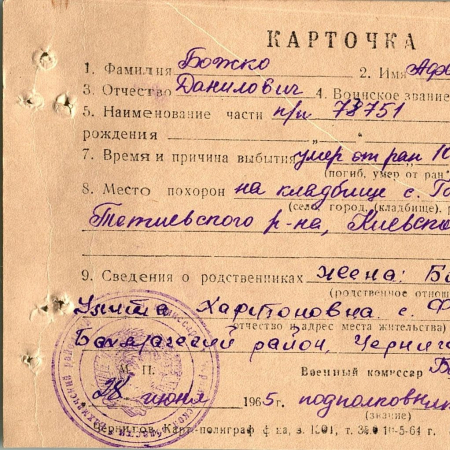 КАРТОЧКА
1. Фамилия Божко 2. Имя Афа
3. Отчество Данилович 4. Воинское звание
5. Наименование части п/п 78751
рождения
7. Время и причина выбытия умер от ран 10
(погиб, умер от ран
8. Место похорон на кладбище с. Го
(село, город, (кладбище), р
Тетиевского р-на, Киевско
9. Сведения о родственниках жена: Бо
(родственное отнош
Улита Харитоновна с.
отчество и адрес места жительства)
район, Черниг
М. П. Военный комиссар
28 июня 1965г. подполковник
(звание)
Чернигов, Карт-полиграф ф-ка, з. 1201, т.